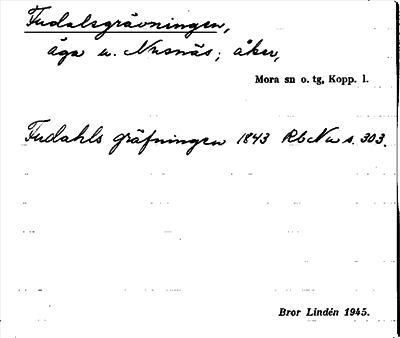 Fudalsgrävningen,
äga u. Nusnäs; åker,
Mora sn o. tg, Kopp. l.
Fudahls gräfningen 1843 Rb Nu s. 303.
Bror Lindén 1945.